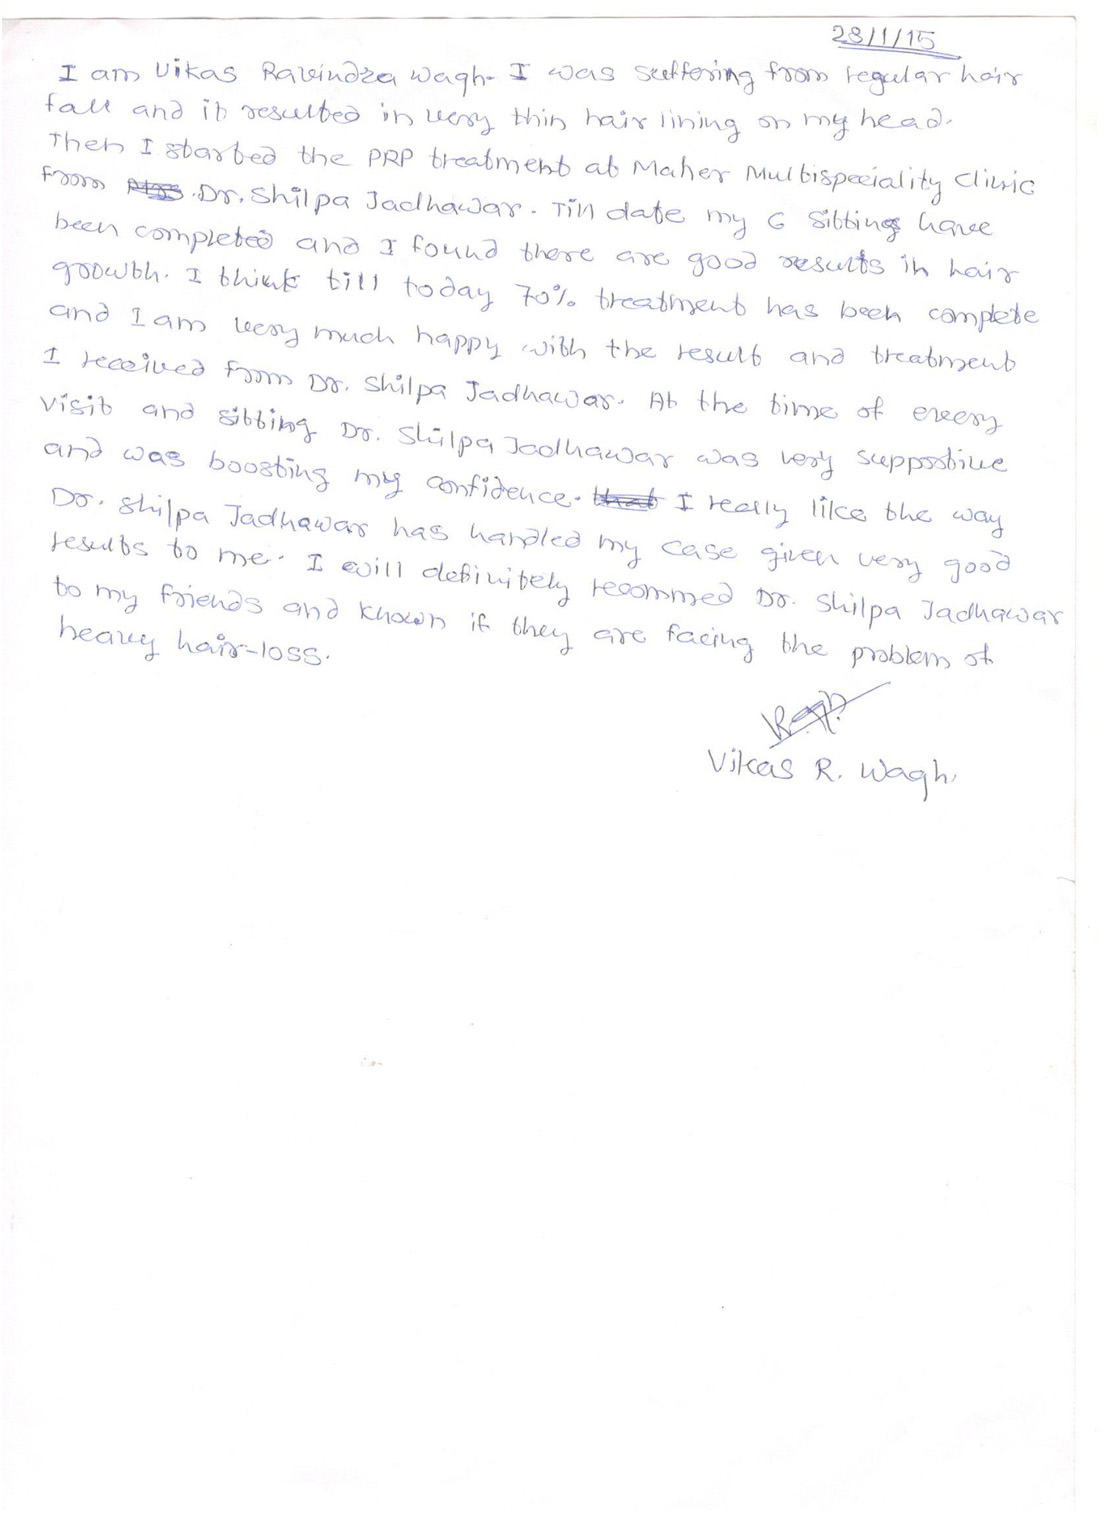 28/1/15
I am Vikas Ravindra Wagh. I was suffering from regular hair
fall and it resulted in very thin hair lining on my head.
Then I started the PRP treatment at Maher Multispeciality Clinic
from Dr. Shilpa Jadhawar. Till date my 6 sittings have
been completed and I found there are good results in hair
growth. I think till today 70% treatment has been complete
and I am very much happy with the result and treatment
I received from Dr. Shilpa Jadhawar. At the time of every
visit and sitting Dr. Shilpa Jadhawar was very supportive
and was boosting my confidence. that I really like the way
Dr. Shilpa Jadhawar has handled my case given very good
results to me. I will definitely recommed Dr. Shilpa Jadhawar
to my friends and known if they are facing the problem of
heavy hair-loss.
Vikas R. Wagh.